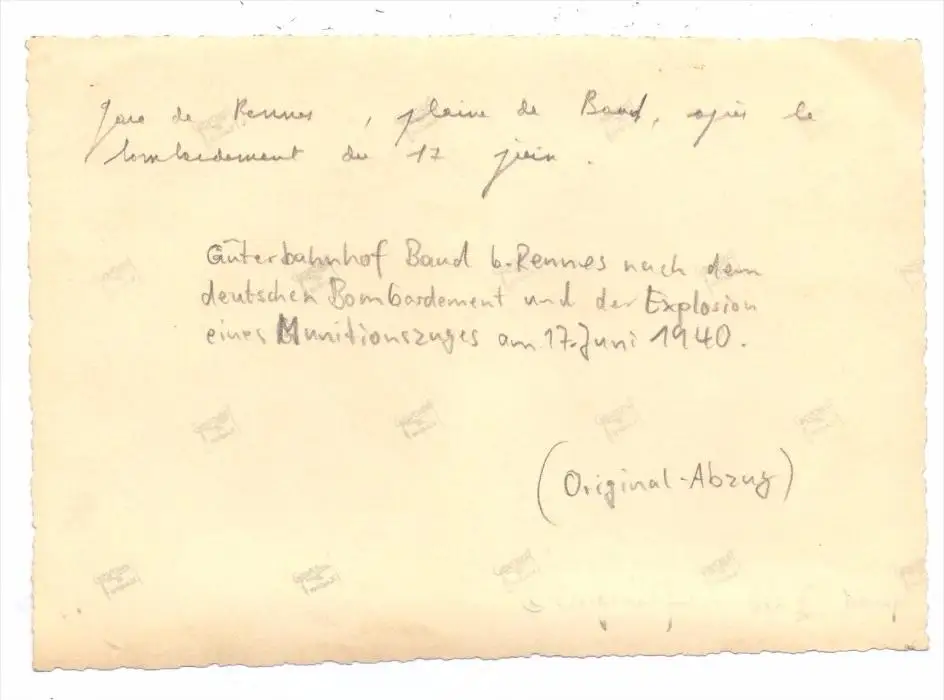 Gare de Rennes, plaine de Baud, après le
bombardement du 17 juin.
Güterbahnhof Baud b. Rennes nach dem
deutschen Bombardement und der Explosion
eines Munitionszuges am 17. Juni 1940.
(Original-Abzug)